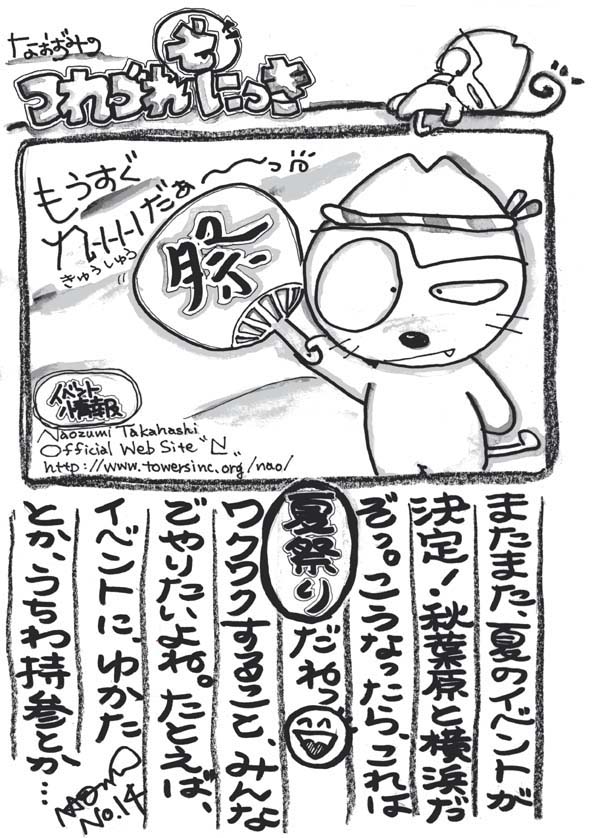 なおずみの
つれづれ
ぜ
にっき
もうすぐ
九州だぁ〜〜っ
きゅうしゅう
祭
イベント
情報
Naozumi Takahashi
Official Web Site "N"
http://www.towersinc.org/nao/
またまた、夏のイベントが
決定！秋葉原と横浜だ
ぞっ。こうなったら、これは
夏祭りだねっ
ワクワクすること、みんな
でやりたいよね。たとえば、
イベントに、ゆかた
とか、うちわ持参とか…
NAOZUMI
No.14